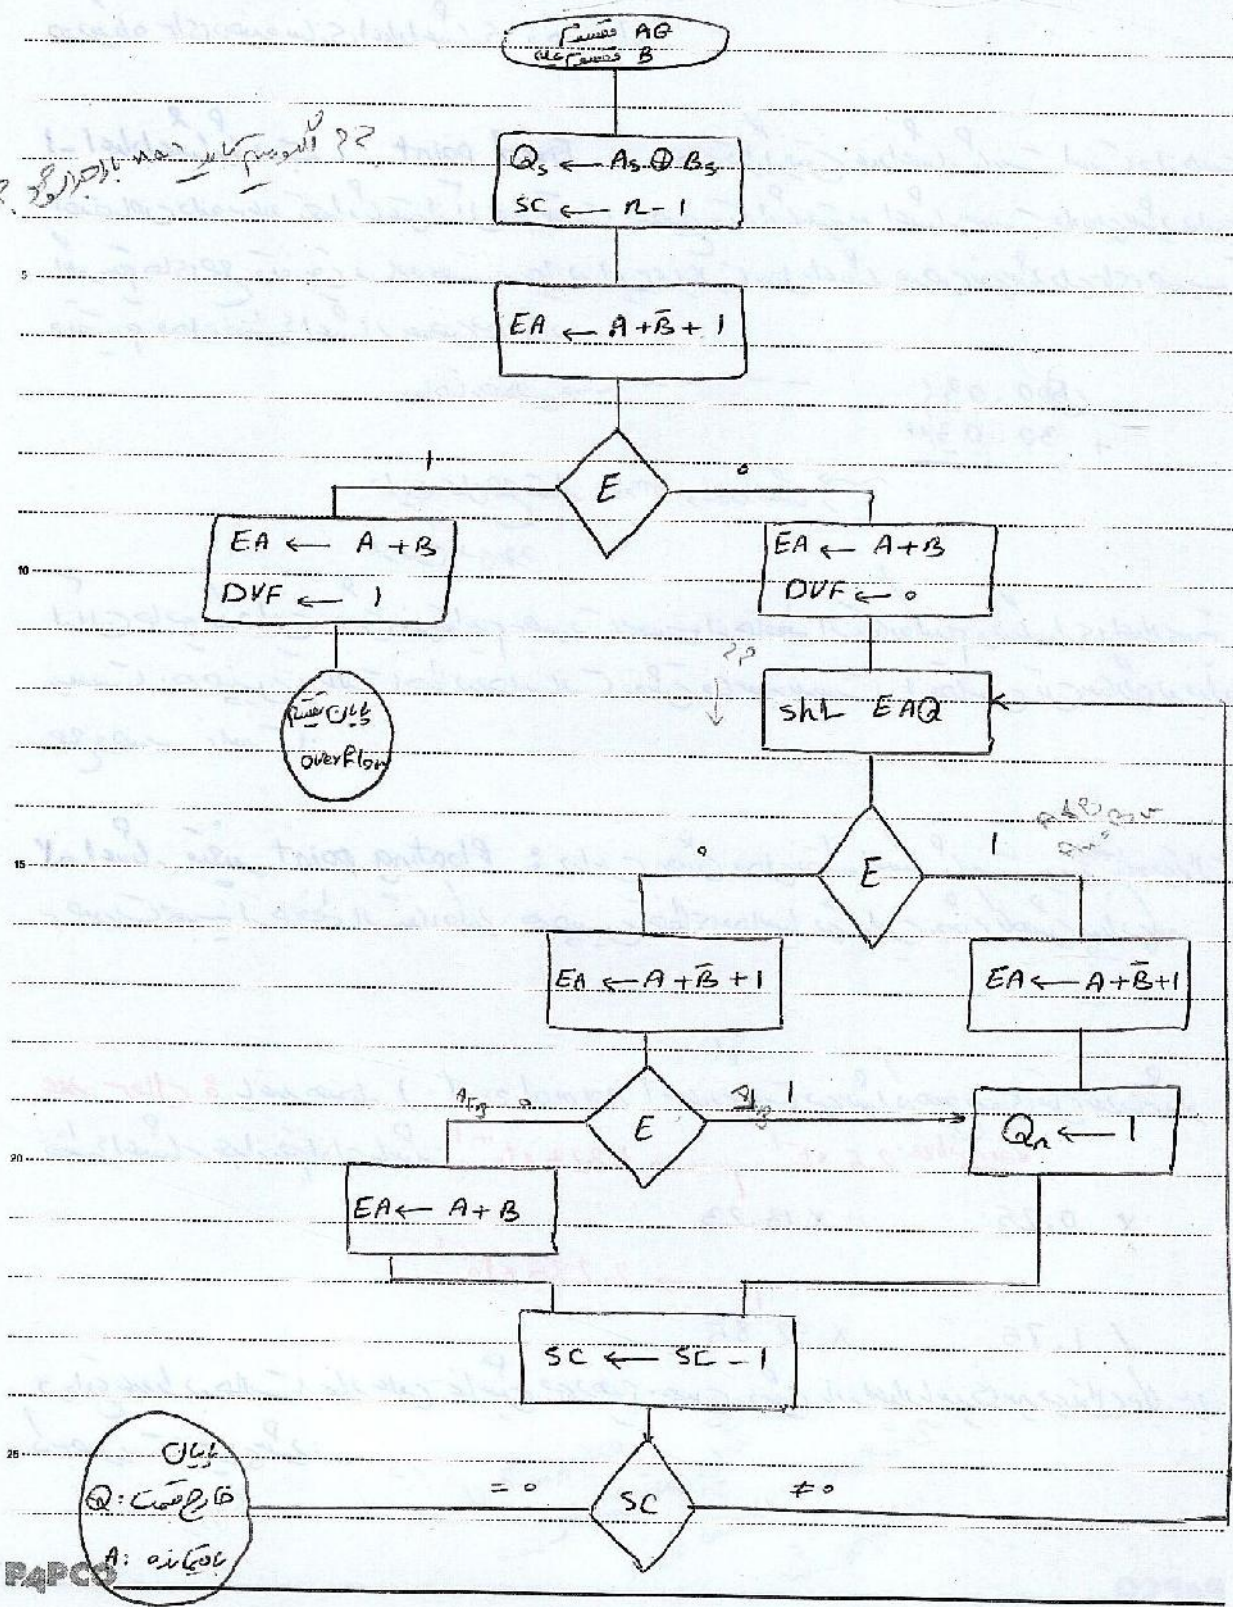 مقسوم AQ
مقسوم علیه B
Qs ← As ⊕ Bs
SC ← n - 1
5
EA ← A + B̅ + 1
E
1
0
EA ← A + B
DVF ← 1
10
EA ← A + B
DVF ← 0
??
پایان تقسیم
overflow
shl EAQ
15
E
0
1
EA ← A + B̅ + 1
EA ← A + B̅ + 1
E
0
1
Qn ← 1
20
EA ← A + B
SC ← SC - 1
25
SC
= 0
≠ 0
پایان
Q: خارج قسمت
A: باقیمانده
PAPCO